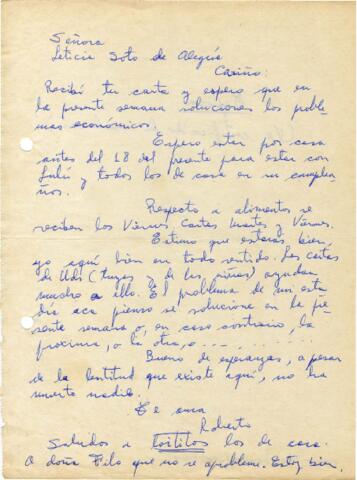 Señora
Leticia Soto de Alegría
Cariño:
Recibí tu carta y espero que en
la presente semana soluciones los proble
mas económicos.
Espero estar por casa
antes del 18 del presente para estar con
Lulú y todos los de casa en su cumplea
ños.
Respecto a alimentos se
reciben los Viernes, Cartas Martes y Viernes.
Estimo que estarás bien,
yo aquí bien en todo sentido. Las cartas
de Uds (tuyas y de las niñas) ayudan
mucho a ello. El problema de mi esta
día acá pienso se solucione en la pre
sente semana o, en caso contrario, la
próxima, o la otra, o ...
Bueno de esperanzas, a pesar
de la lentitud que existe aquí, no ha
muerto nadie.
Te ama
Roberto
Saludos a toititos los de casa.
A doña Filo que no se aprobleme. Estoy bien.